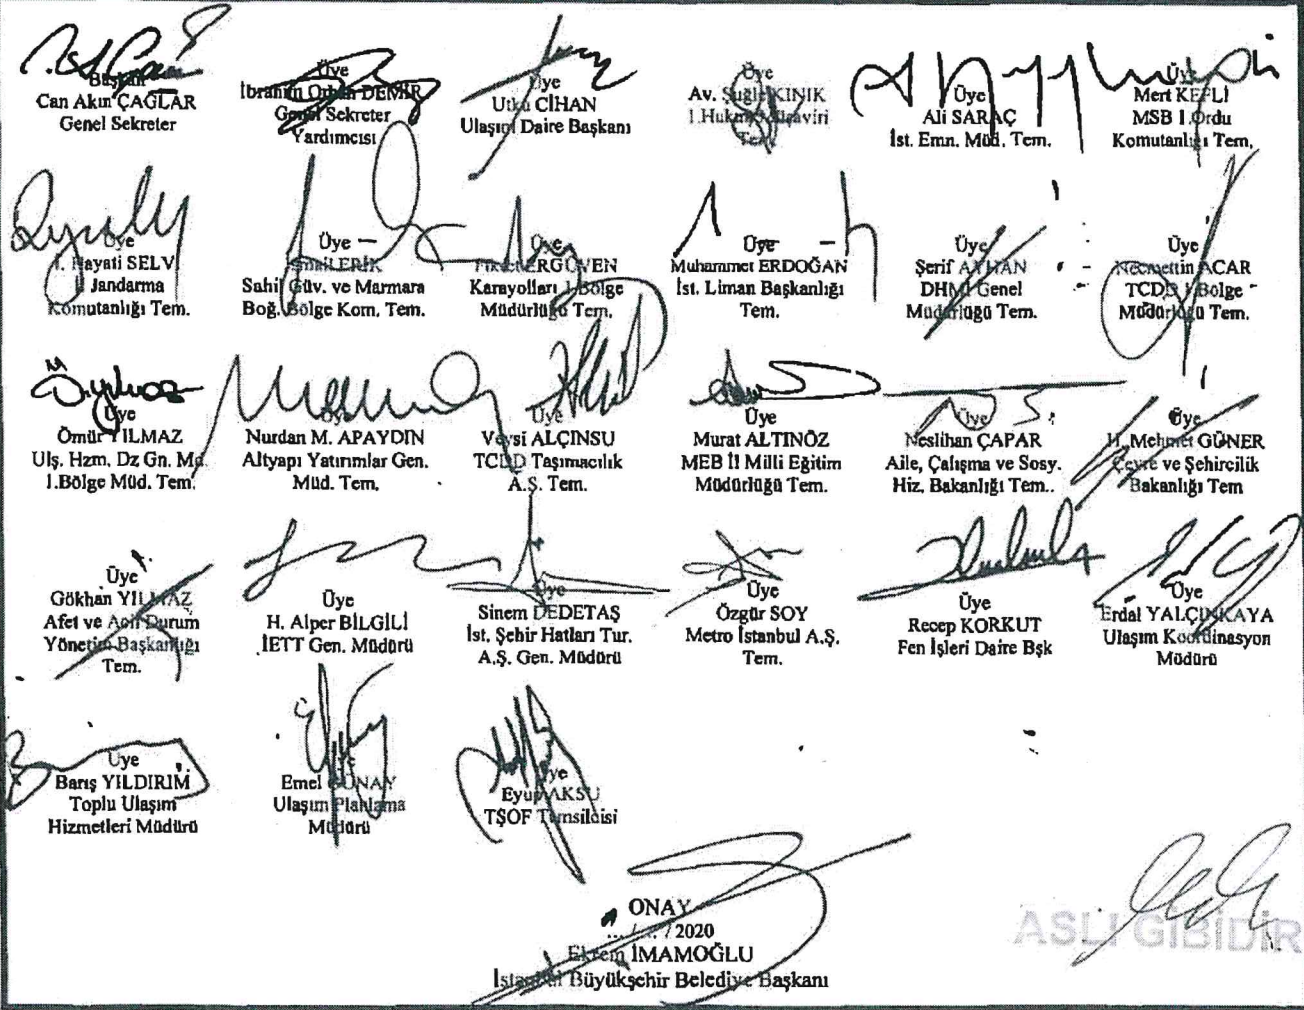 Başkan
Can Akın ÇAĞLAR
Genel Sekreter
Üye
İbrahim Orhan DEMİR
Genel Sekreter
Yardımcısı
Üye
Utku CİHAN
Ulaşım Daire Başkanı
Üye
Av. KINIK
Üye
Ali SARAÇ
İst. Emn. Müd. Tem.
Üye
Mert KEPLİ
MSB 1.Ordu
Komutanlığı Tem.
Üye
Hayati SELVİ
Jandarma
Komutanlığı Tem.
Üye
İsmail ERİK
Sahil Güv. ve Marmara
Boğ. Bölge Kom. Tem.
Üye
Fikret ERGÜVEN
Karayolları 1.Bölge
Müdürlüğü Tem.
Üye
Muhammet ERDOĞAN
İst. Liman Başkanlığı
Tem.
Üye
Şerif AYHAN
DHMİ Genel
Müdürlüğü Tem.
Üye
Necmettin ACAR
TCDD 1.Bölge
Müdürlüğü Tem.
Üye
Ömür YILMAZ
Ulş. Hzm. Dz Gn. Md.
1.Bölge Müd. Tem.
Üye
Nurdan M. APAYDIN
Altyapı Yatırımlar Gen.
Müd. Tem.
Üye
Veysi ALÇINSU
TCDD Taşımacılık
A.Ş. Tem.
Üye
Murat ALTINÖZ
MEB İl Milli Eğitim
Müdürlüğü Tem.
Üye
Neslihan ÇAPAR
Aile, Çalışma ve Sosy.
Hiz. Bakanlığı Tem..
Üye
H. Mehmet GÜNER
Çevre ve Şehircilik
Bakanlığı Tem
Üye
Gökhan YILMAZ
Afet ve Acil Durum
Yönetim Başkanlığı
Tem.
Üye
H. Alper BİLGİLİ
İETT Gen. Müdürü
Üye
Sinem DEDETAŞ
İst. Şehir Hatları Tur.
A.Ş. Gen. Müdürü
Üye
Özgür SOY
Metro İstanbul A.Ş.
Tem.
Üye
Recep KORKUT
Fen İşleri Daire Bşk
Üye
Erdal YALÇINKAYA
Ulaşım Koordinasyon
Müdürü
Üye
Barış YILDIRIM
Toplu Ulaşım
Hizmetleri Müdürü
Üye
Emel GÜNAY
Ulaşım Planlama
Müdürü
Üye
Eyup AKSU
TŞOF Temsilcisi
ONAY
.../.../2020
Ekrem İMAMOĞLU
İstanbul Büyükşehir Belediye Başkanı
ASLI GİBİDİR